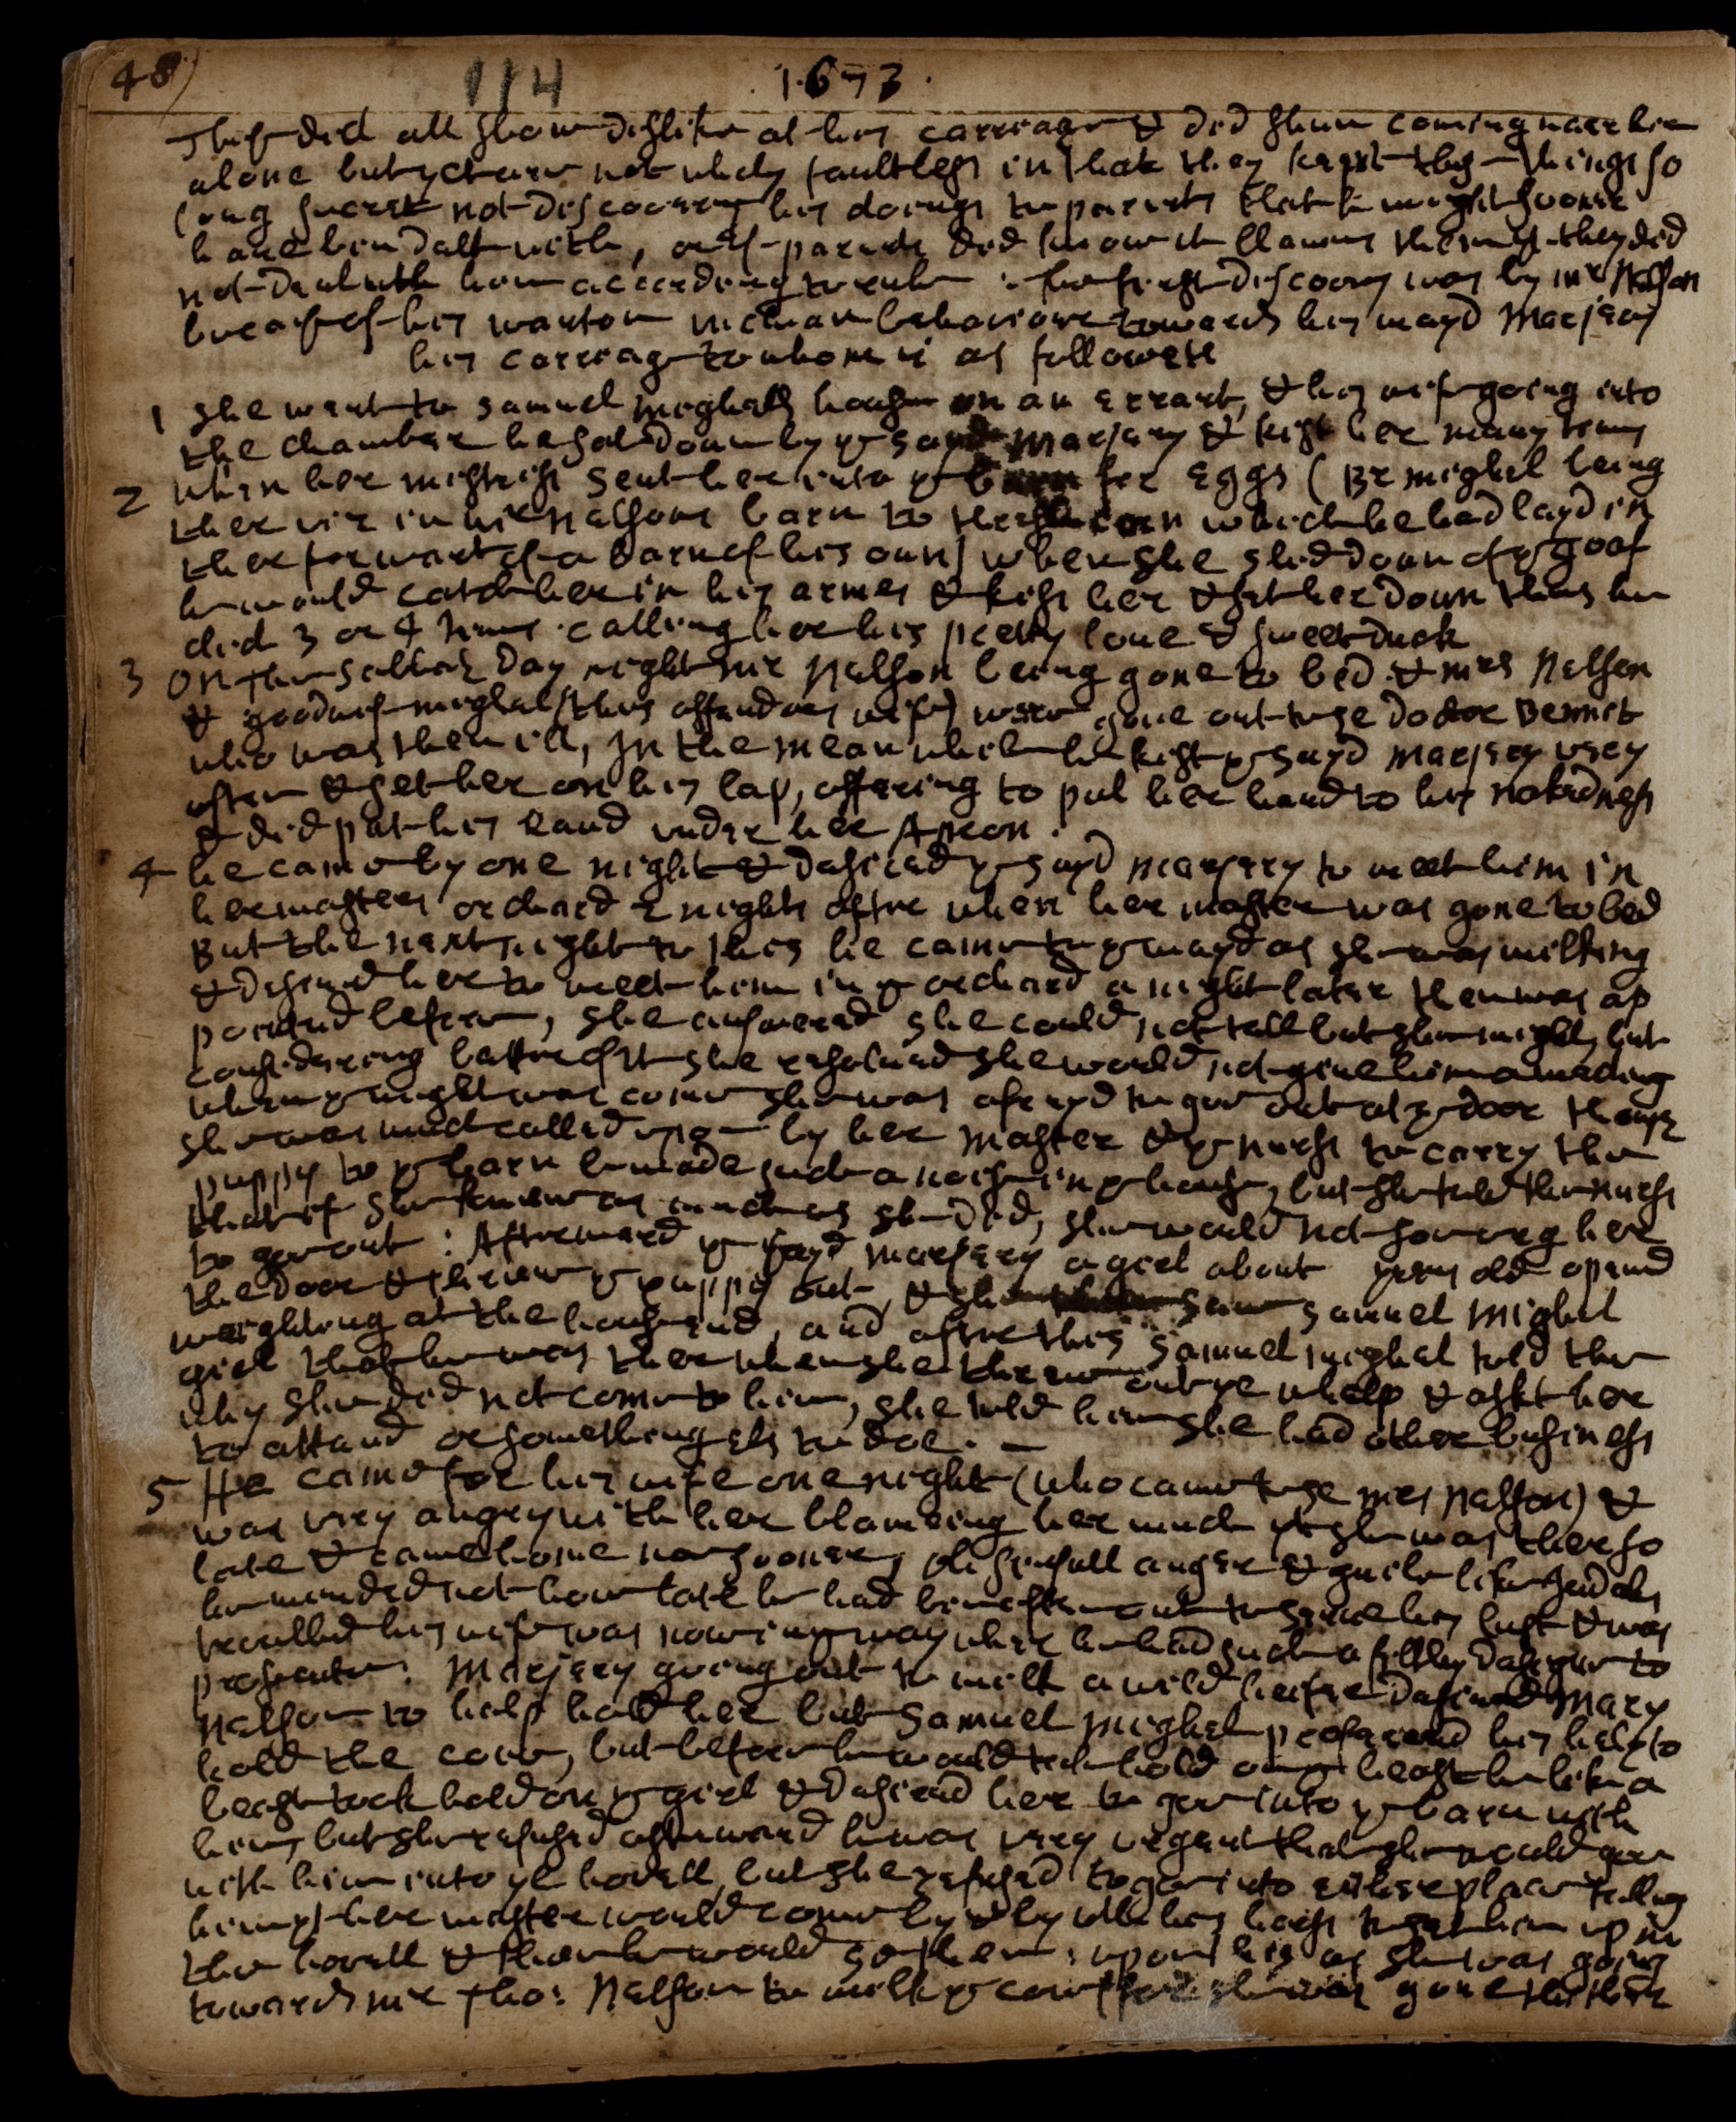 48)
114
1673.
These did all show dislike at his carreage & did shun coming neer him
alone but yet were not wholy faultless in that they kept thes things so
long secret not discovering his doings to parents that he might sooner
have bin dalt with, or if parents did know it blame them yt they did
not deal with him according to rule : the first discovry was by mr Nelson
because of his wanton unclean behaviour towards his mayd Marjery
his carreag to whome is as followeth
1 She went to Samuel Mighells house on an errant, & his wife going into
the chamber he sat down by ye sayd Marjery & kist her many times
2 When her mistriss sent her into ye barn for Eggs (Br mighel being
there in mr Nelsons barn to thresh corn which he had layd in
there for want of a barn of his own) when she slid down of ye goaf
he would catch her in his armes & kiss her & set her down thus he
did 3 or 4 times calling her his pretty love & sweet duck
3 On the sabbath day night mr Nelson being gone to bed & mrs Nelson
& goodwife mighel (this offendors wife) were gone out to se Doctor Bennet
who was then ill, In the mean while he kist ye sayd Marjery very
often & set her on his lap, offering to pul her hand to his nakedness
& did put his hand under her Apron.
4 he came by one night & desired ye sayd marjery to meet him in
her masters orchard 2 nights after when her master was gone to bed
But the next night to this he came to ye mayd as she was milking
& desired her to meet him in ye orchard a night later then was ap
pointed before, she answered she could not tell but she might, but
considering better of it she resolved she would not give him a meeting
when ye night was come she was afrayd to goe out at ye door though
she was much called upon by her master & ye nurse to carry the
puppy to ye barn he made such a noise in ye house, but she told the nurse
that if she knew as much as she did, she would not so urg her
to goe out : Afterward ye sayd Marjery a girl about yeers old opened
the door & threw ye puppy out, & she saw Samuel Mighel
weighting at the hous end, and after this Samuel mighel told the
girl that he was there when she threw out ye whelp & askt her
why she did not come to him, she told him she had other business
to attend or something els to doe. —
5 He came for his wife one night (who came to se mrs Nelson) &
was very angry with her blameing her much yt she was there so
late & came home no sooner, deceitfull anger & guile like Judas
he minded not how late he had bin often out to serve his lust & was
troubled his wife was now in ye way where he had such a filthy designe to
prosecute. Marjery going out to milk a wild heifer desired Mary
Nelson to help hold her but Samuel mighel profered his help to
hold the cow, but before he would take hold on ye beast he like a
beast took hold on ye girl & desired her to goe into ye barn with
him, but she refused afterward he was very urgent that she would goe
with him into ye hovell, but she refused to goe into either place telling
him yt her master would come by & by with his horse to set him up in
the hovell & then he would se them : upon this as she was going
towards mr Tho: Nelson to milk ye cow (for she was gone thither